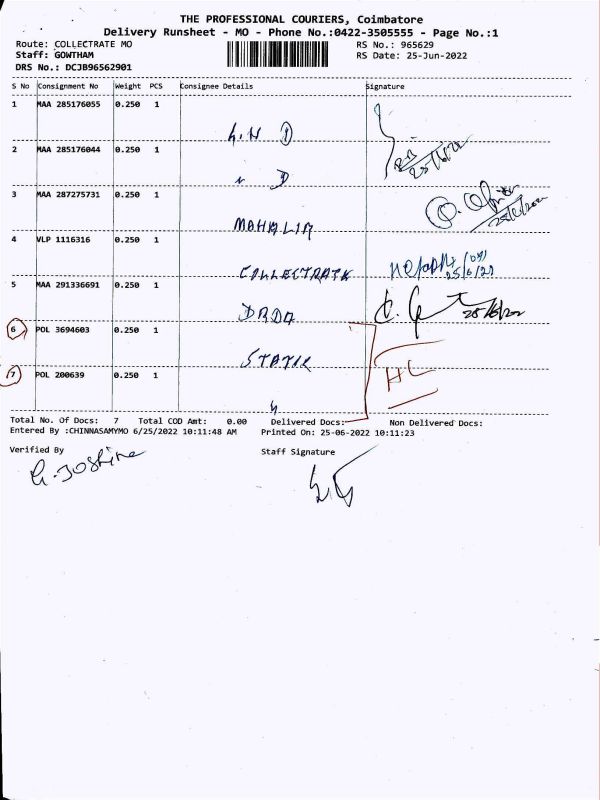 THE PROFESSIONAL COURIERS, Coimbatore
Delivery Runsheet - MO - Phone No.:0422-3505555 - Page No.:1
Route: COLLECTRATE MO RS No.: 965629
Staff: GOWTHAM RS Date: 25-Jun-2022
DRS No.: DCJB96562901
S No Consignment No Weight PCS Consignee Details Signature
1 MAA 285176055 0.250 1
G.H D
25/6/22
2 MAA 285176044 0.250 1
" D
3 MAA 287275731 0.250 1
MAHALIR
25/6/2022
4 VLP 1116316 0.250 1
COLLECTRATE
25/6/22
5 MAA 291336691 0.250 1
DRDA
25/6/22
6 POL 3694603 0.250 1
7 POL 200639 0.250 1
HC
Total No. Of Docs: 7 Total COD Amt: 0.00 Delivered Docs: Non Delivered Docs:
Entered By :CHINNASAMYMO 6/25/2022 10:11:48 AM Printed On: 25-06-2022 10:11:23
Verified By Staff Signature
G. Joshine